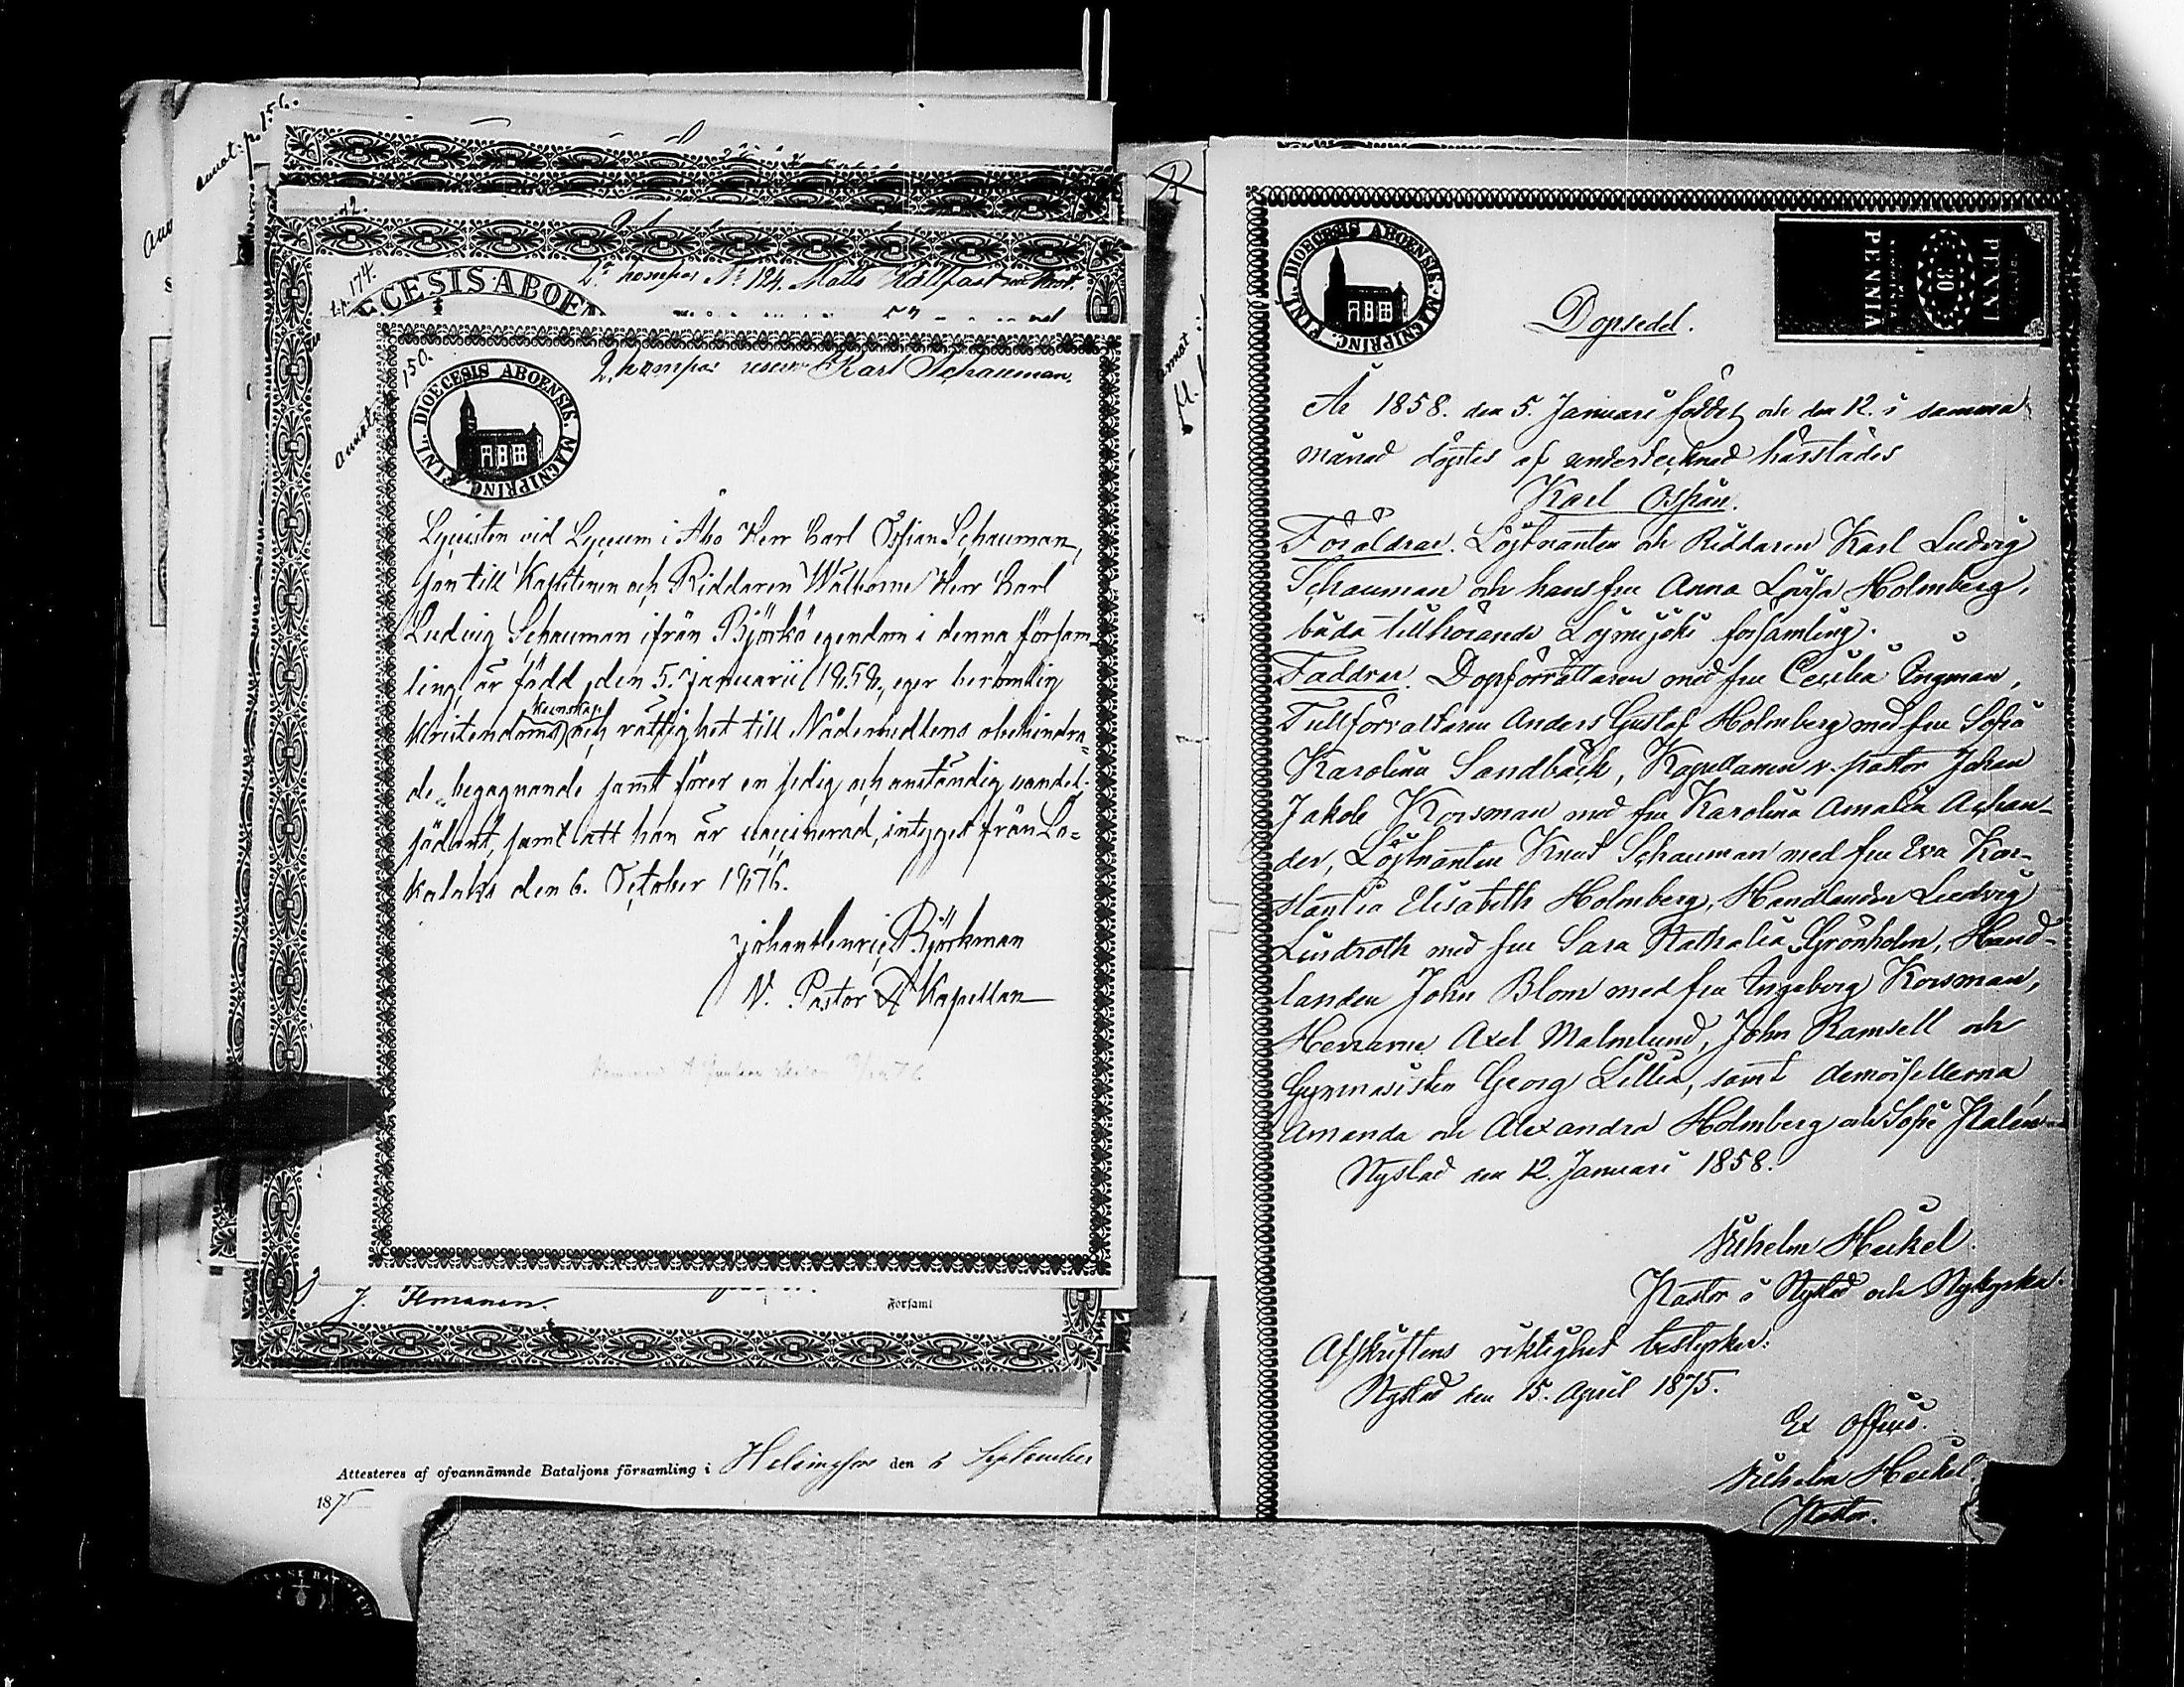 annot. p. 156.
12.
t.p. 174.
2. kompa: Nº 124. Matts Hällfast
CESIS ABOEN
annot. 150.
2. kompa: reserv Karl Schauman.
FINL. DIOECESIS ABOENSIS MAGNIPRINC.
Lyceisten vid Lyceum i Åbo Herr Carl Ossian Schauman,
son till Kapitenen och Riddaren Wälborne Herr Carl
Ludvig Schauman ifrån Björkö egendom i denna försam-
ling, är född den 5. januarii 1858, eger berömlig
Kristendoms kunskap och rättighet till Nådemedlens obehindra-
de begagnande samt förer en sedig och anständig vandel.
sådant, samt att han är vaccinerad, intygget från Lo-
kalaks den 6. October 1876.
Johan Henric Björkman
V. Pastor & Kapellan
J. Ilmanen.
Församl
Attesteres af ofvannämnde Bataljons församling i Helsingfors den 6 September
1875
FINL. DIOECESIS ABOENSIS MAGNIPRINC.
PENNI
30
PENNIÄ
Dopsedel.
År 1858. den 5. Januari föddes och den 12. i samma
månad döptes af undertecknad härstädes
Karl Ossian.
Föräldrar. Löjtnanten och Riddaren Karl Ludvig
Schauman och hans fru Anna Lovisa Holmberg,
båda tillhörande Loimijoki församling.
Faddrar. Dopförrättaren med fru Cecilia Ingman,
Tullförvaltaren Anders Gustaf Holmberg med fru Sofia
Karolina Sandbäck, Kapellanen v. pastor Johan
Jakob Korsman med fru Karolina Amalia Achan-
der, Löjtnanten Knut Schauman med fru Eva Kon-
stantia Elisabeth Holmberg, Handlanden Ludvig
Lindroth med fru Sara Nathalia Grönholm, Hand-
landen John Blom med fru Ingeborg Korsman,
Herrarne Axel Malmlund, John Ramsell och
Gymnasisten Georg Lillia, samt demoisellerna
Amanda och Alexandra Holmberg och Sofie
Nystad den 12. Januari 1858.
Vilhelm Heikel
Pastor i Nystad och Nykyrka.
Afskriftens riktighet bestyrker:
Nystad den 15. April 1875.
Ex officio.
Vilhelm Heikel
Pastor.